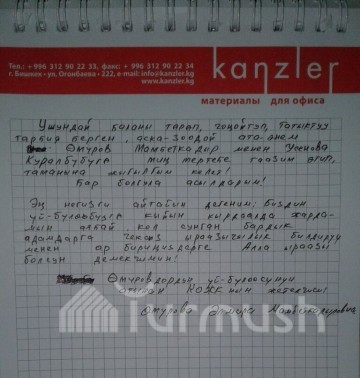 Тел.: + 996 312 90 22 33, факс: + 996 312 90 22 34
г. Бишкек, ул. Огонбаева 222, e-mail: info@kanzler.kg
www.kanzler.kg
kanzler
материалы для офиса
Ушундай баланы тарап, чоңойтуп, татыктуу
тарбия берген, аска-зоодой ата-энем
Өмүров Мамбеткадир менен Усенова
Куралбүбүгө миң мертебе таазим этип,
таманына жыгылгым келет!
Бар болгула асылдарым!
Эң негизги айтайын дегеним: Биздин
үй-бүлөөбүзгө кыйын кырдаалда жарда-
мын аябай кол сунган бардык
адамдарга чексиз ыраазычылык билдирүү
менен ар бириңиздерге Алла ыраазы
болсун демекчимин!
Өмүровдордун үй-бүлөөсүнүн
атынан КОЖК нын жетекчиси
Өмүрова Мамбеткадировна
Turmush